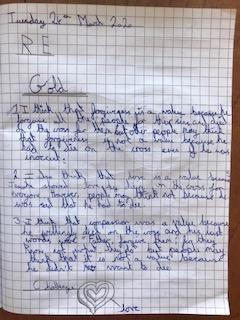 Tuesday 24th March 2020
RE
Gold
1 I think that forgiveness is a value because he
forgave all the people for their sins and died
on the cross for them but other people may think
that forgiveness is not a value because he
had to die on the cross even if he was
inocent.
2 I also think that love is a value because
Jesus showed love by dieing on the cross for
everyone however people may think not because he
was sad that he had to die.
3 I think that compassion was a value because
he willingly died on the cross and his last
words were "Father, forgive them; for they
know not what they do" but people may
think that it is not a value because
he didn't want to die
Challenge
love